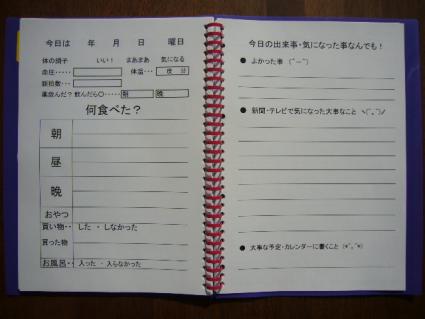 今日は 年 月 日 曜日
体の調子 いい! まあまあ 気になる
血圧・・・・・ 体温・・・ 度 分
脈拍数・・・
薬飲んだ?飲んだら〇・・・・・ 朝 晩
何食べた?
朝
昼
晩
おやつ
買い物・・ した ・ しなかった
買った物
お風呂・・ 入った ・ 入らなかった
今日の出来事・気になった事なんでも!
● よかった事 (^ー^)
● 新聞・テレビで気になった大事なこと ヽ(^。^)ノ
● 大事な予定・カレンダーに書くこと (*^。^*)